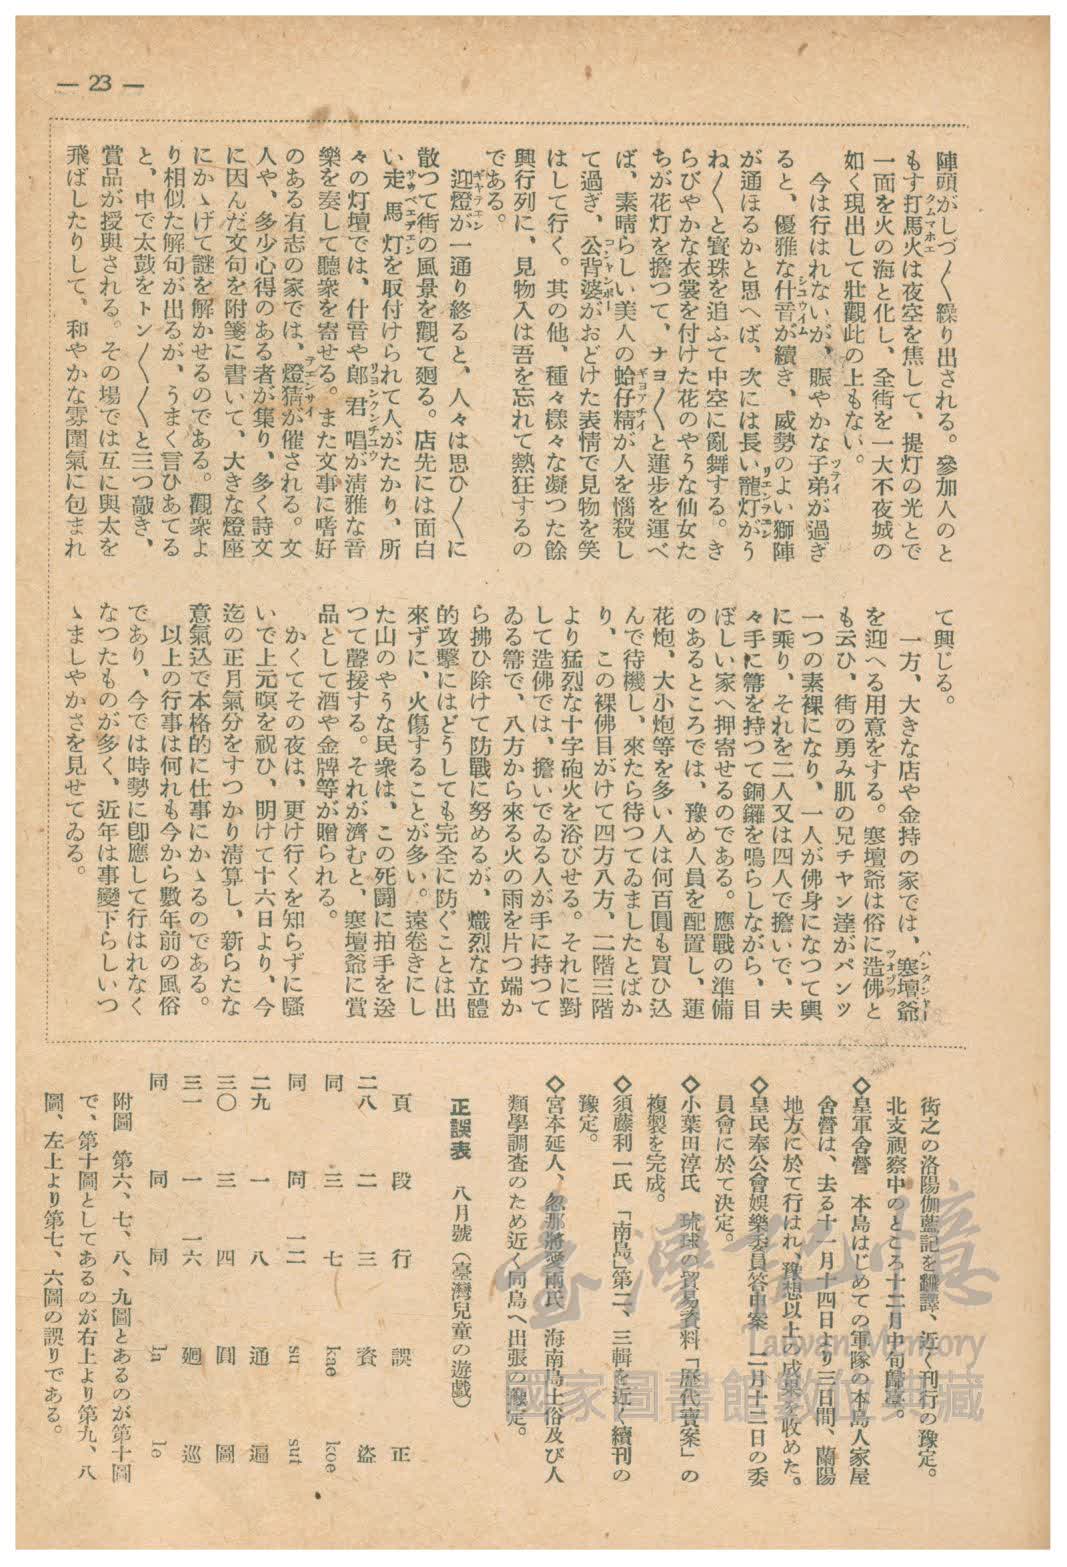 — 23 —
陣頭がしづ〳〵繰り出される。參加人のと
もす打馬火は夜空を焦して、提灯の光とで
一面を火の海と化し、全街を一大不夜城の
如く現出して壯觀此の上もない。
今は行はれないが、賑やかな子弟が過ぎ
ると、優雅な什音が續き、威勢のよい獅陣
が通ほるかと思へば、次には長い龍灯がう
ね〳〵と寳珠を追ふて中空に亂舞する。き
らびやかな衣裳を付けた花のやうな仙女た
ちが花灯を擔つて、ナヨ〳〵と蓮步を運べ
ば、素晴らしい美人の蛤仔精が人を惱殺し
て過ぎ、公背婆がおどけた表情で見物を笑
はして行く。其の他、種々樣々な凝つた餘
興行列に、見物人は吾を忘れて熱狂するの
である。
迎燈が一通り終ると、人々は思ひ〳〵に
散つて街の風景を觀て廻る。店先には面白
い走馬灯を取付けられて人がたかり、所
々の灯壇では、什音や郎君唱が淸雅な音
樂を奏して聽衆を寄せる。また文事に嗜好
のある有志の家では、燈猜が催される。文
人や、多少心得のある者が集り、多く詩文
に因んだ文句を附箋に書いて、大きな燈座
にかゝげて謎を解かせるのである。觀衆よ
り相似た解句が出るが、うまく言ひあてる
と、中で太鼓をトン〳〵〳〵と三つ敲き、
賞品が授與される。その場では互に與太を
飛ばしたりして、和やかな雰圍氣に包まれ
て興じる。
一方、大きな店や金持の家では、寒壇爺
を迎へる用意をする。寒壇爺は俗に造佛と
も云ひ、街の勇み肌の兄チャン達がパンツ
一つの素裸になり、一人が佛身になつて輿
に乘り、それを二人又は四人で擔いで、夫
々手に箒を持つて銅鑼を鳴らしながら、目
ぼしい家へ押寄せるのである。應戰の準備
のあるところでは、豫め人員を配置し、蓮
花炮、大小炮等を多い人は何百圓も買ひ込
んで待機し、來たら待つてゐましたとばか
り、この裸佛目がけて四方八方、二階三階
より猛烈な十字砲火を浴びせる。それに對
して造佛では、擔いでゐる人が手に持つて
ゐる箒で、八方から來る火の雨を片つ端か
ら拂ひ除けて防戰に努めるが、熾烈な立體
的攻擊にはどうしても完全に防ぐことは出
來ずに、火傷することが多い。遠卷きにし
た山のやうな民衆は、この死鬪に拍手を送
つて聲援する。それが濟むと、寒壇爺に賞
品として酒や金牌等が贈られる。
かくてその夜は、更け行くを知らずに騷
いで上元暝を祝ひ、明けて十六日より、今
迄の正月氣分をすつかり淸算し、新らたな
意氣込で本格的に仕事にかゝるのである。
以上の行事は何れも今から數年前の風俗
であり、今では時勢に卽應して行はれなく
なつたものが多く、近年は事變下らしいつ
ゝましやかさを見せてゐる。
クムマホエ
ツテイ
シユウイム
リエンテエン
ギヨアチイ
コンヤンポー
ギヤテエン
サウベエテエン
リヨンクンチユウ
テエンサイ
ハンタンヤー
ツオプツ
街之の洛陽伽藍記を飜譯、近く刊行の豫定。
北支視察中のところ十二月中旬歸臺。
◇皇軍舍營　本島はじめての軍隊の本島人家屋
舍營は、去る十一月十四日より三日間、蘭陽
地方に於て行はれ、豫想以上の成果を收めた。
◇皇民奉公會娛樂委員答申案　二月十二日の委
員會に於て決定。
◇小葉田淳氏　琉球の貿易資料「歷代寶案」の
複製を完成。
◇須藤利一氏　「南島」第二、三輯を近く續刊の
豫定。
◇宮本延人、忽那將愛兩氏　海南島土俗及び人
類學調査のため近く同島へ出張の豫定。
正誤表　八月號（臺灣兒童の遊戲）
頁　段　行　誤　正
二八　二　三　瓷　盜
同　三　七　kae　koe
同　同　一二　su　sut
二九　一　八　通　遍
三〇　三　四　圓　圖
三一　一　一六　廻　巡
同　同　同　la　le
附圖　第六、七、八、九圖とあるのが第十圖
で、第十圖としてあるのが右上より第九、八
圖、左上より第七、六圖の誤りである。
臺灣記憶
Taiwan Memory
國家圖書館數位典藏